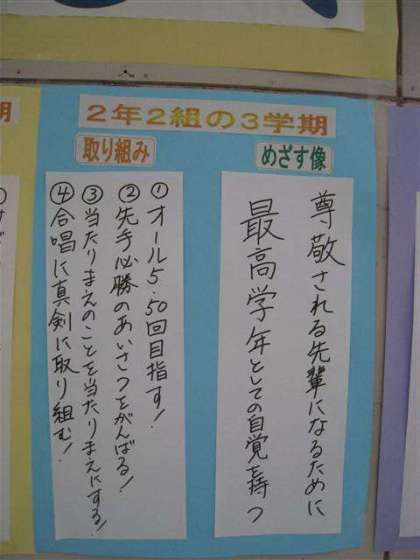 2年2組の3学期
めざす像
尊敬される先輩になるために
最高学年としての自覚を持つ
取り組み
①オール5.50回目指す!
②先手必勝のあいさつをがんばる!
③当たりまえのことを当たりまえにする!
④合唱に真剣に取り組む!
期